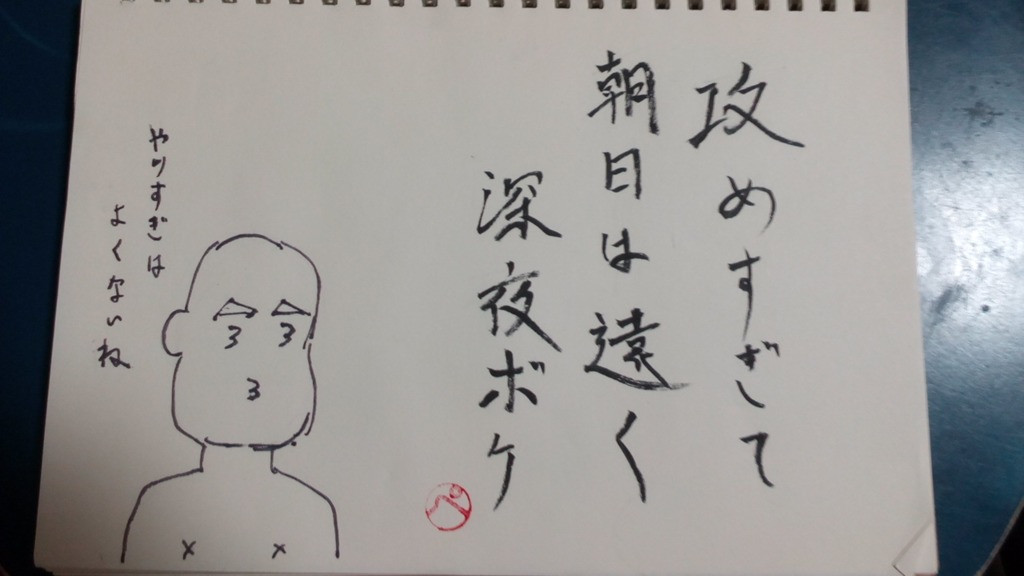 攻めすぎて
朝日は遠く
深夜ボケ
やりすぎは
よくないね
3 3
3
ぺ